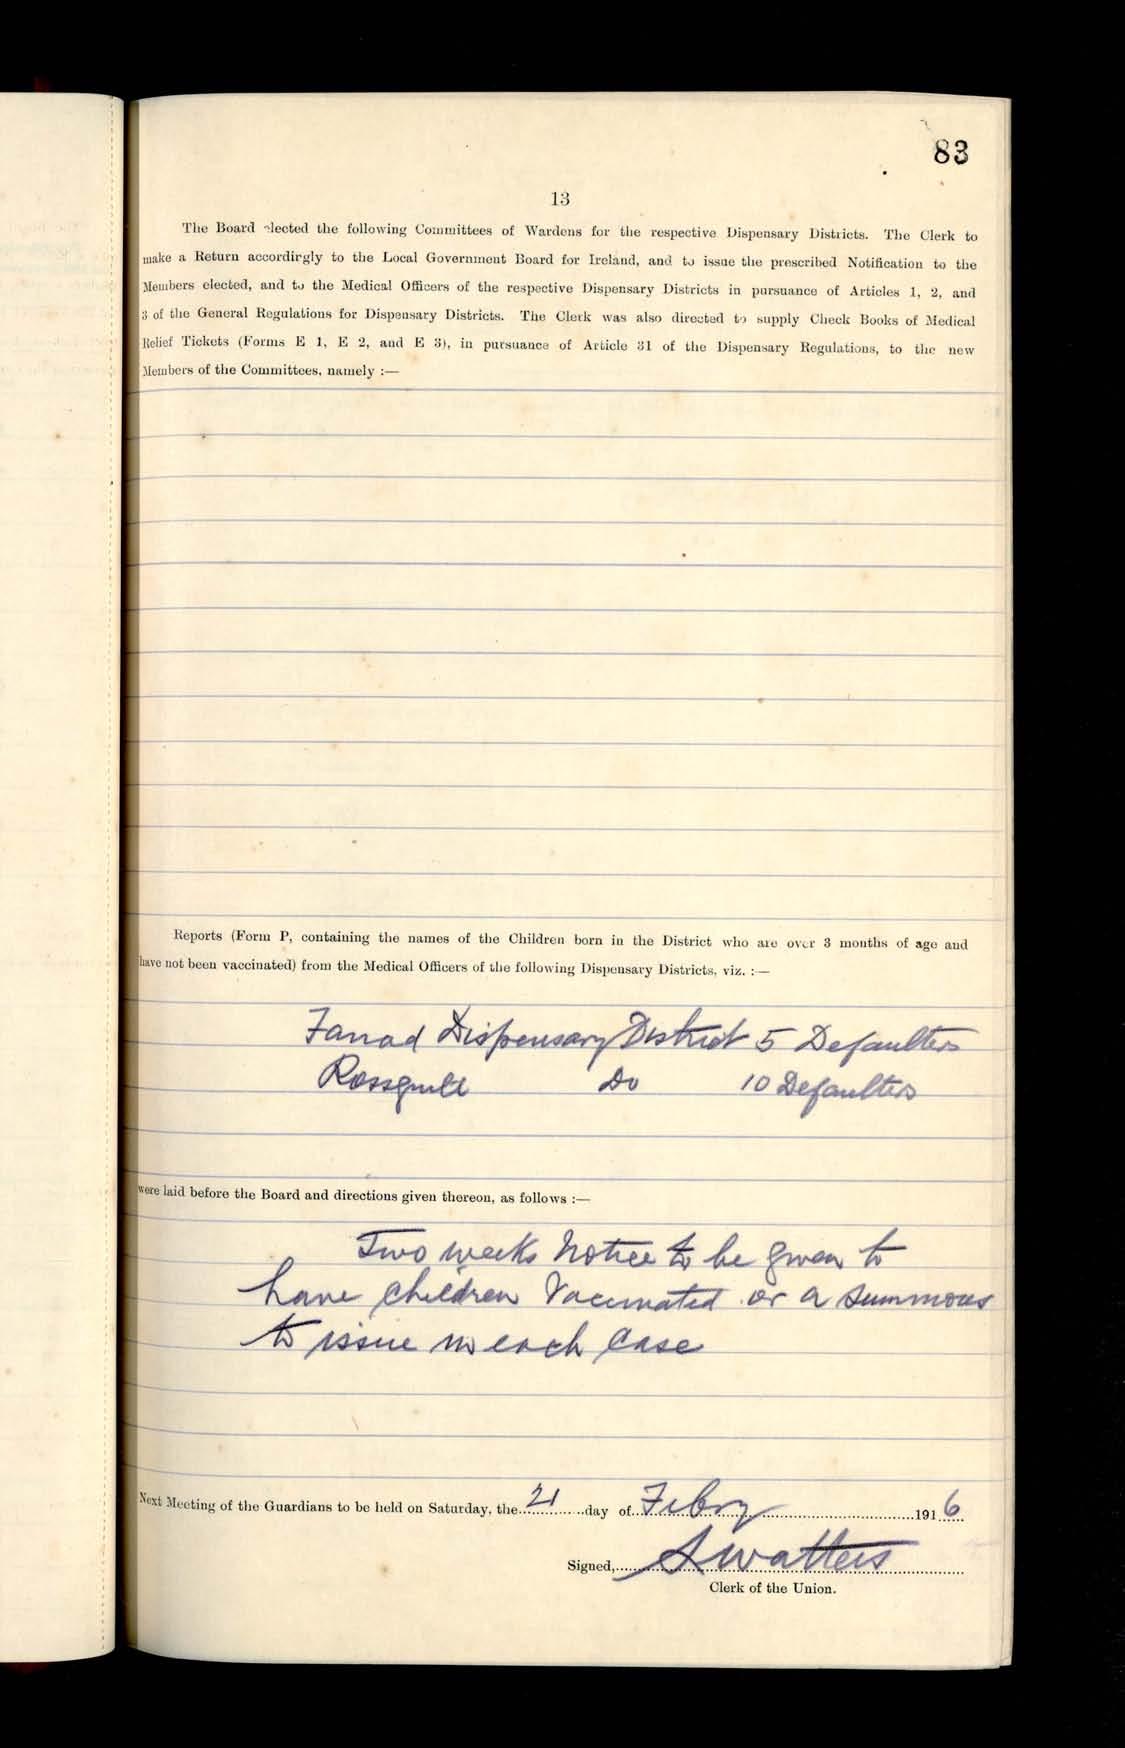 83
13
The Board elected the following Committees of Wardens for the respective Dispensary Districts. The Clerk to
make a Return accordirgly to the Local Government Board for Ireland, and to issue the prescribed Notification to the
Members elected, and to the Medical Officers of the respective Dispensary Districts in pursuance of Articles 1, 2, and
3 of the General Regulations for Dispensary Districts. The Clerk was also directed to supply Check Books of Medical
Relief Tickets (Forms E 1, E 2, and E 3), in pursuance of Article 31 of the Dispensary Regulations, to the new
Members of the Committees, namely :—
Reports (Form P, containing the names of the Children born in the District who are over 3 months of age and
have not been vaccinated) from the Medical Officers of the following Dispensary Districts, viz. :—
Fanad Dispensary District 5 Defaulters
Rossguill Do 10 Defaulters
were laid before the Board and directions given thereon, as follows :—
Two weeks Notice to be given to
have children Vaccinated or a Summons
to issue in each Case
Next Meeting of the Guardians to be held on Saturday, the 21 day of Febry 1916
Signed, S Watters
Clerk of the Union.